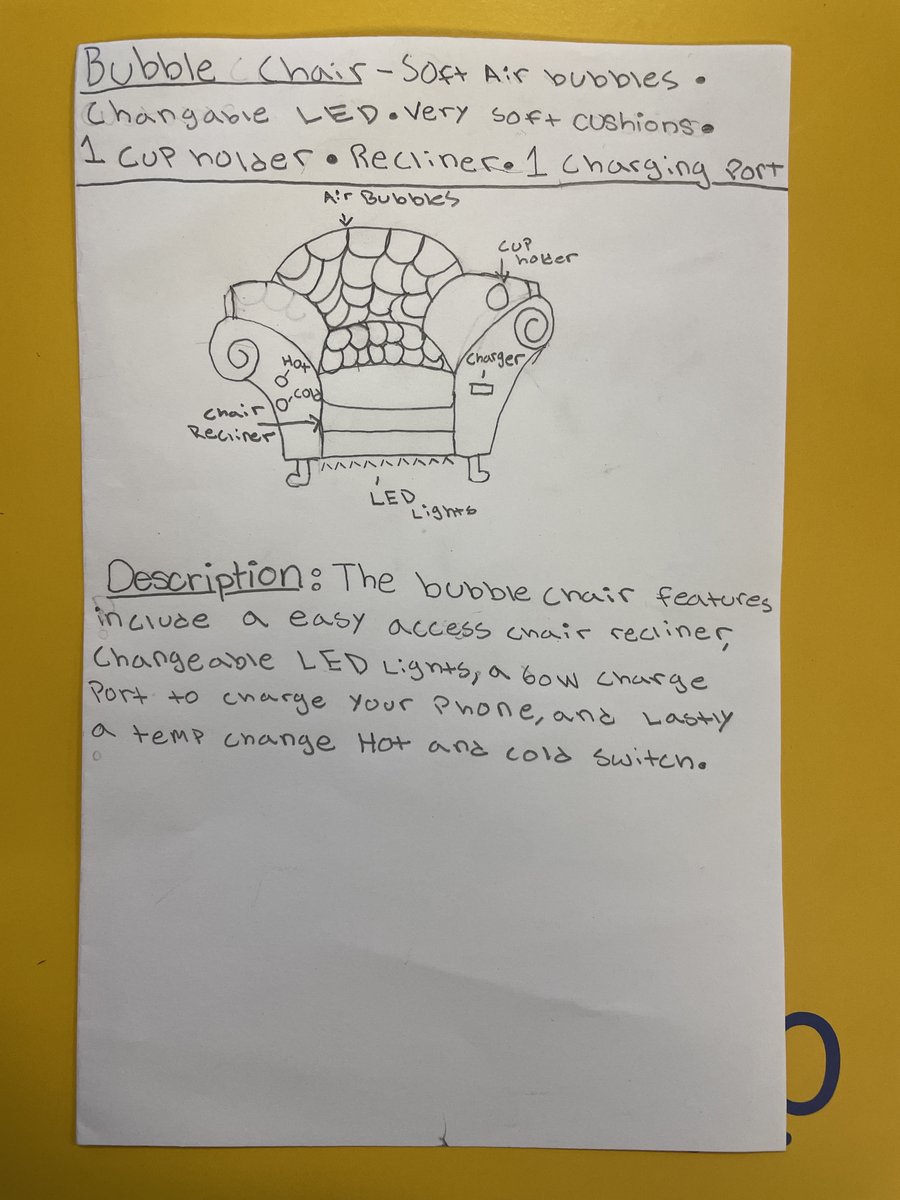 Bubble Chair - Soft Air bubbles •
Changable LED • Very soft cushions •
1 Cup holder • Recliner • 1 Charging Port
Air Bubbles
Cup
holder
Hot
Charger
Cold
Chair
Recliner
LED
Lights
Description: The bubble chair features
include a easy access chair recliner,
Changeable LED Lights, a 60W charge
Port to charge your Phone, and Lastly
a temp change Hot and cold switch.